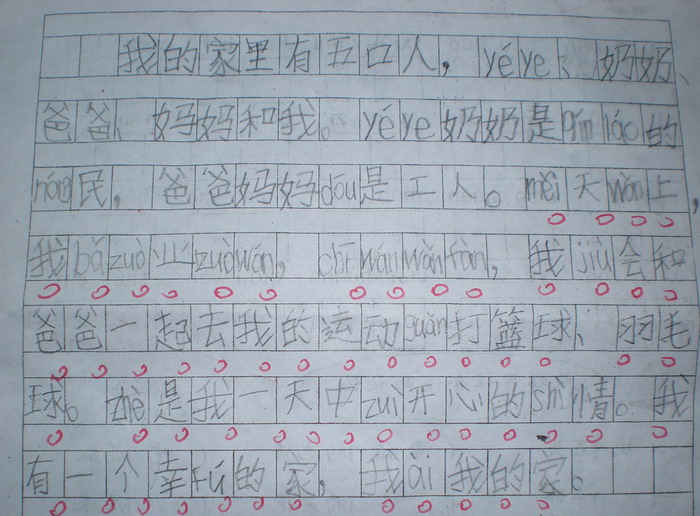 我的家里有五口人，yéye、奶奶、
爸爸、妈妈和我。yéye奶奶是qín láo的
nóng民，爸爸妈妈dōu是工人。měi天wǎn上，
我bǎ zuò业zuò wán，chī wán wǎn fàn，我jiù会和
爸爸一起去我的运动guǎn打篮球、羽毛
球。zhè是我一天中zuì开心的shì情。我
有一个幸fú的家，我ài我的家。